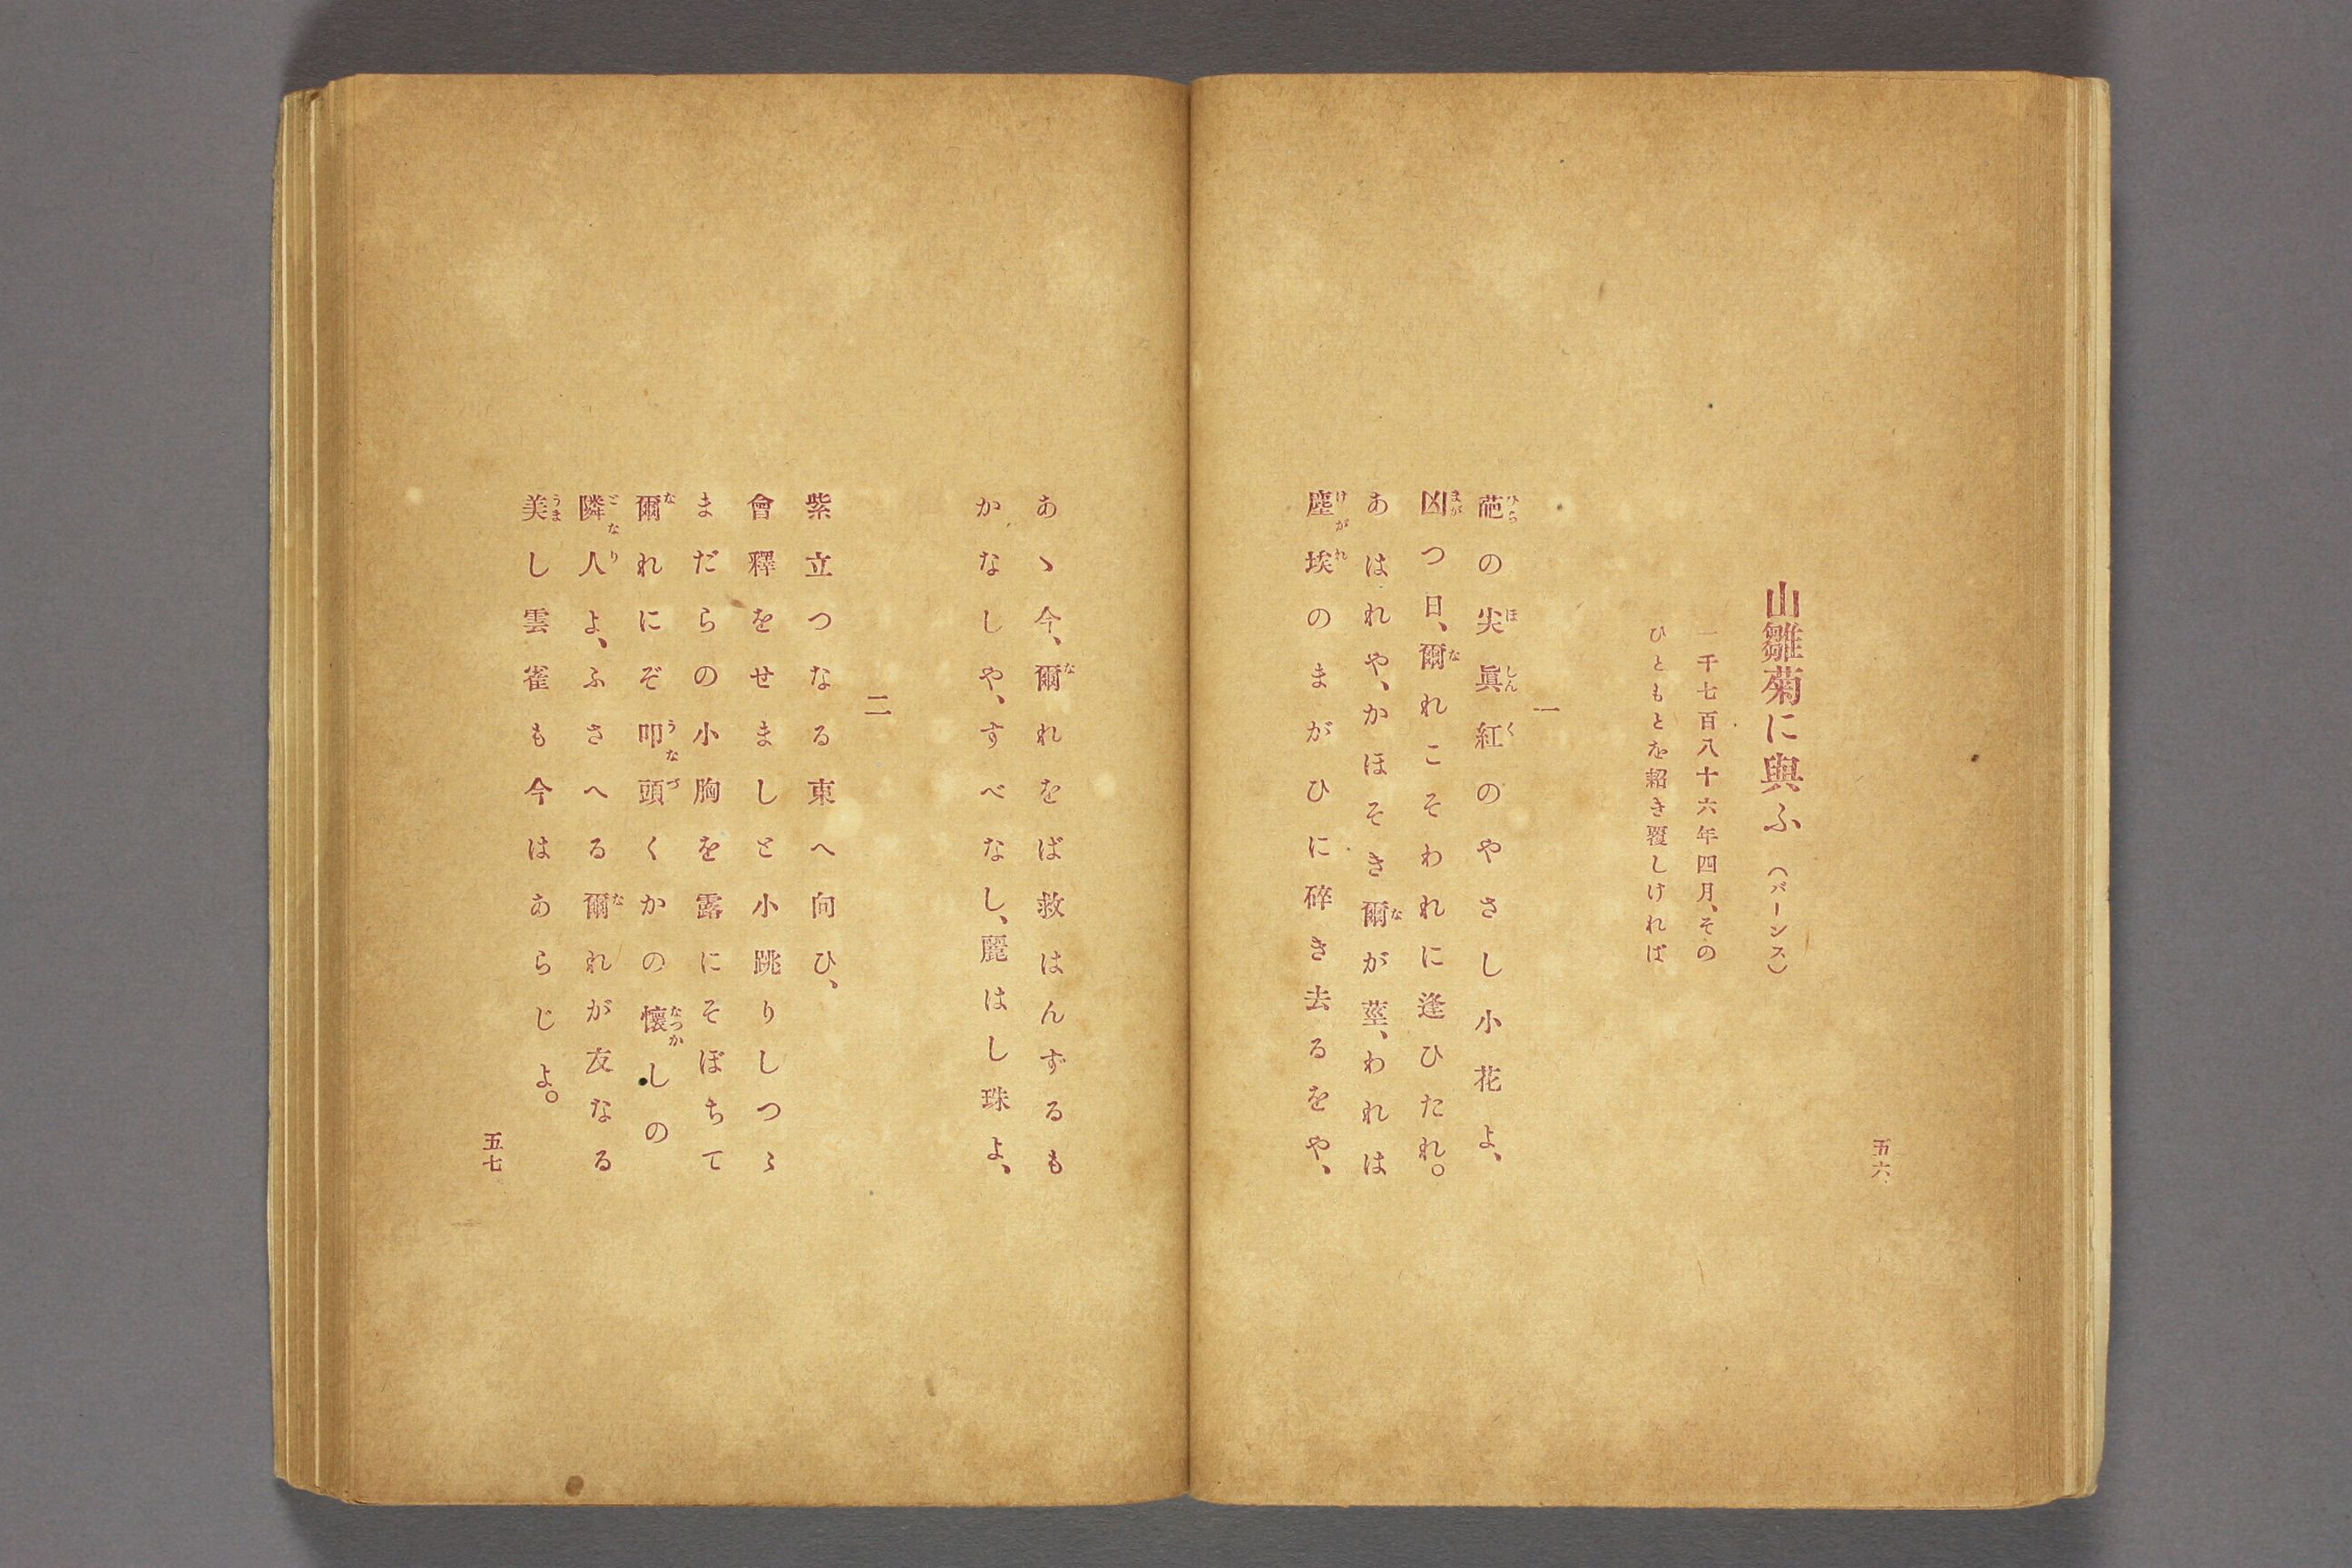 五六
山雛菊に與ふ (バーンス)
一千七百八十六年四月、その
ひともとを耡き覆しければ
一
葩の尖眞紅のやさし小花よ、
凶つ日、爾れこそわれに逢ひたれ。
あはれや、かほそき爾が莖、われは
塵埃のまがひに碎き去るをや、
あゝ今、爾れをば救はんずるも
かなしや、すべなし、麗はし珠よ、
二
紫立つなる東へ向ひ、
會釋をせましと小跳りしつゝ
まだらの小胸を露にそぼちて
爾れにぞ叩頭くかの懷しの
隣人よ、ふさへる爾れが友なる
美し雲雀も今はあらじよ。
五七